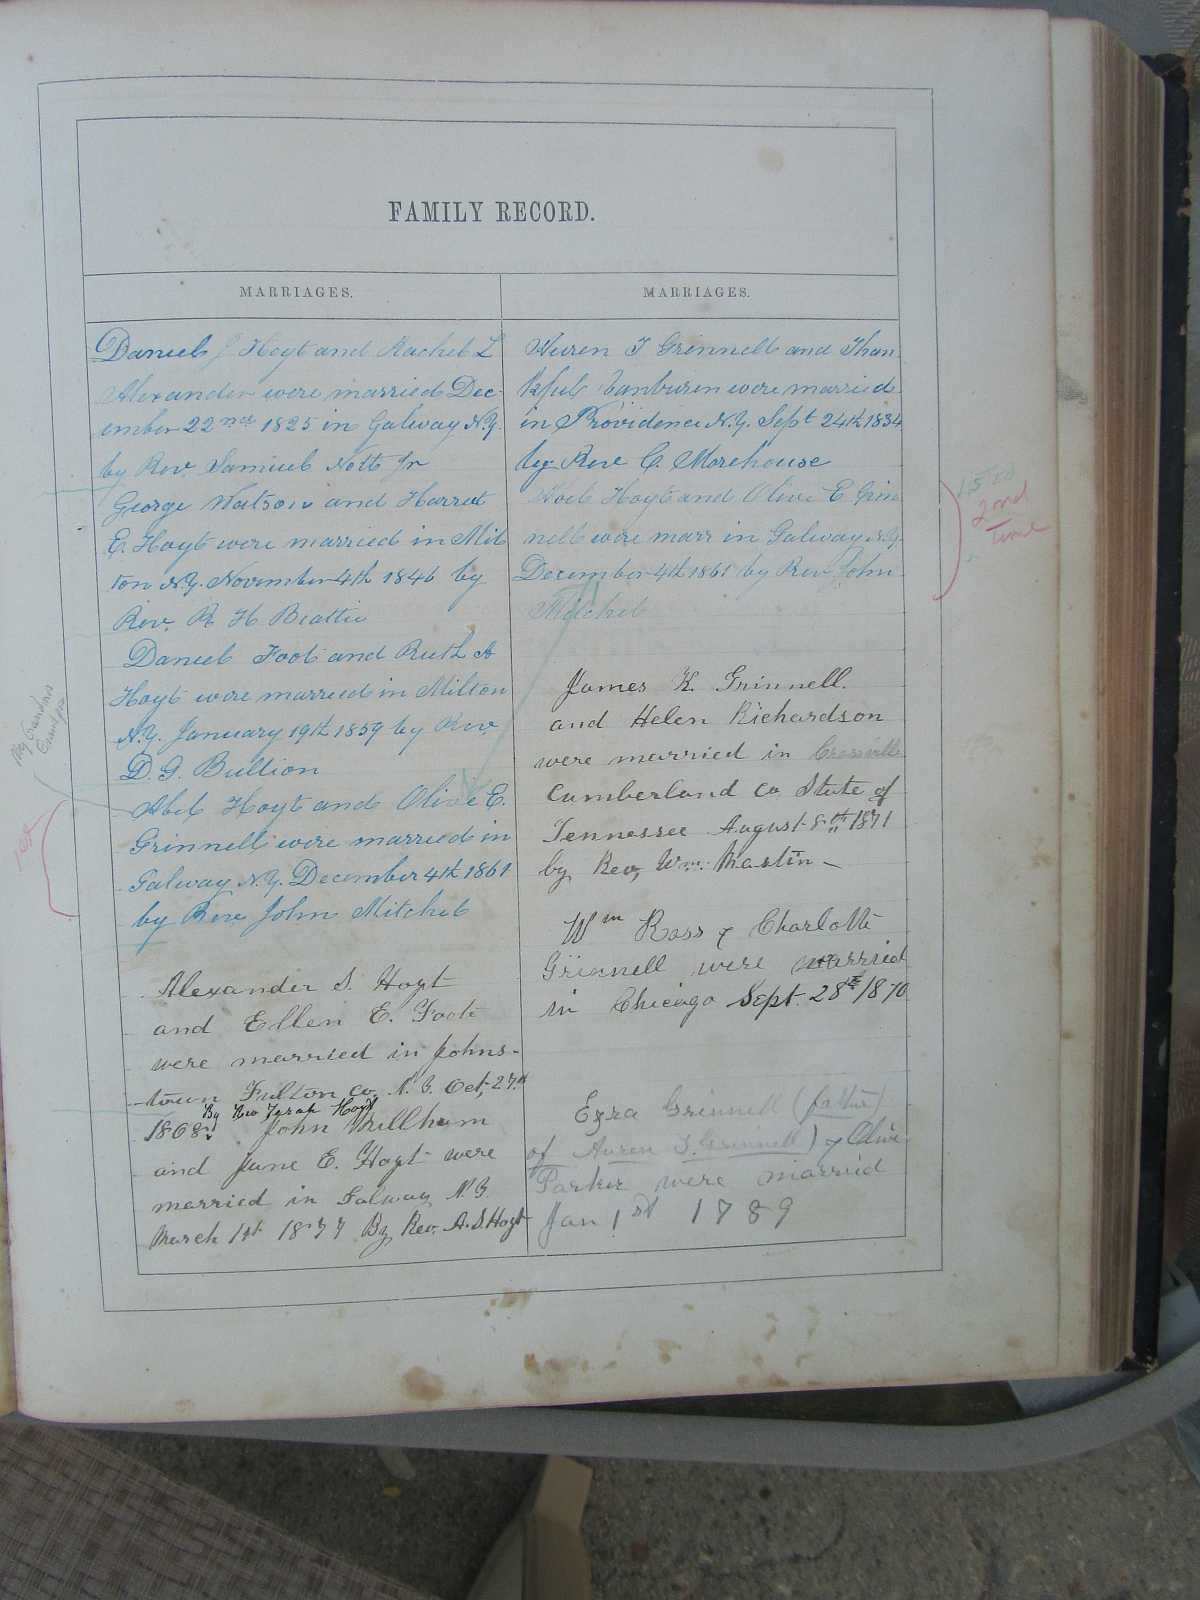 FAMILY RECORD.
MARRIAGES.
Daniel J Hoyt and Rachel L
Alexander were married Dec-
ember 22nd 1825 in Galway N.Y.
by Rev. Samuel Nott Jr
George Watson and Harriet
E. Hoyt were married in Mil
ton N.Y. November 4th 1846 by
Rev. R. H. Beattie
Daniel Foot and Ruth A
Hoyt were married in Milton
N.Y. January 19th 1859 by Rev.
D. G. Bullion
Abel Hoyt and Olive E.
Grinnell were married in
Galway N.Y. December 4th 1861
by Rev. John Mitchel
Alexander S. Hoyt
and Ellen E. Foote
were married in Johns-
town Fulton Co. N.Y. Oct, 27th
By Rev Hoyt
1868
John Millham
and Jane E. Hoyt were
married in Galway N.Y.
March 1st 1877 By Rev. A.S. Hoyt
My Grandma
Grandpa
1st
MARRIAGES.
Auren T Grinnell and Than
kful Vanburen were married
in Providence N.Y. Sept 24th 1834
by Rev C. Morehouse
Abel Hoyt and Olive E. Grin
nell were marr in Galway N.Y.
December 4th 1861 by Rev John
Mitchel
James K. Grinnell.
and Helen Richardson
were married in Crossville
Cumberland Co, State of
Tennessee August 8th 1871
by Rev, Wm. Mastin
Wm Ross & Charlotte
Grinnell were married
in Chicago Sept. 28th 1870
Ezra Grinnell (father)
of Auren T. Grinnell) & Olive
Parker were married
Jan 1st 1789
2nd
time